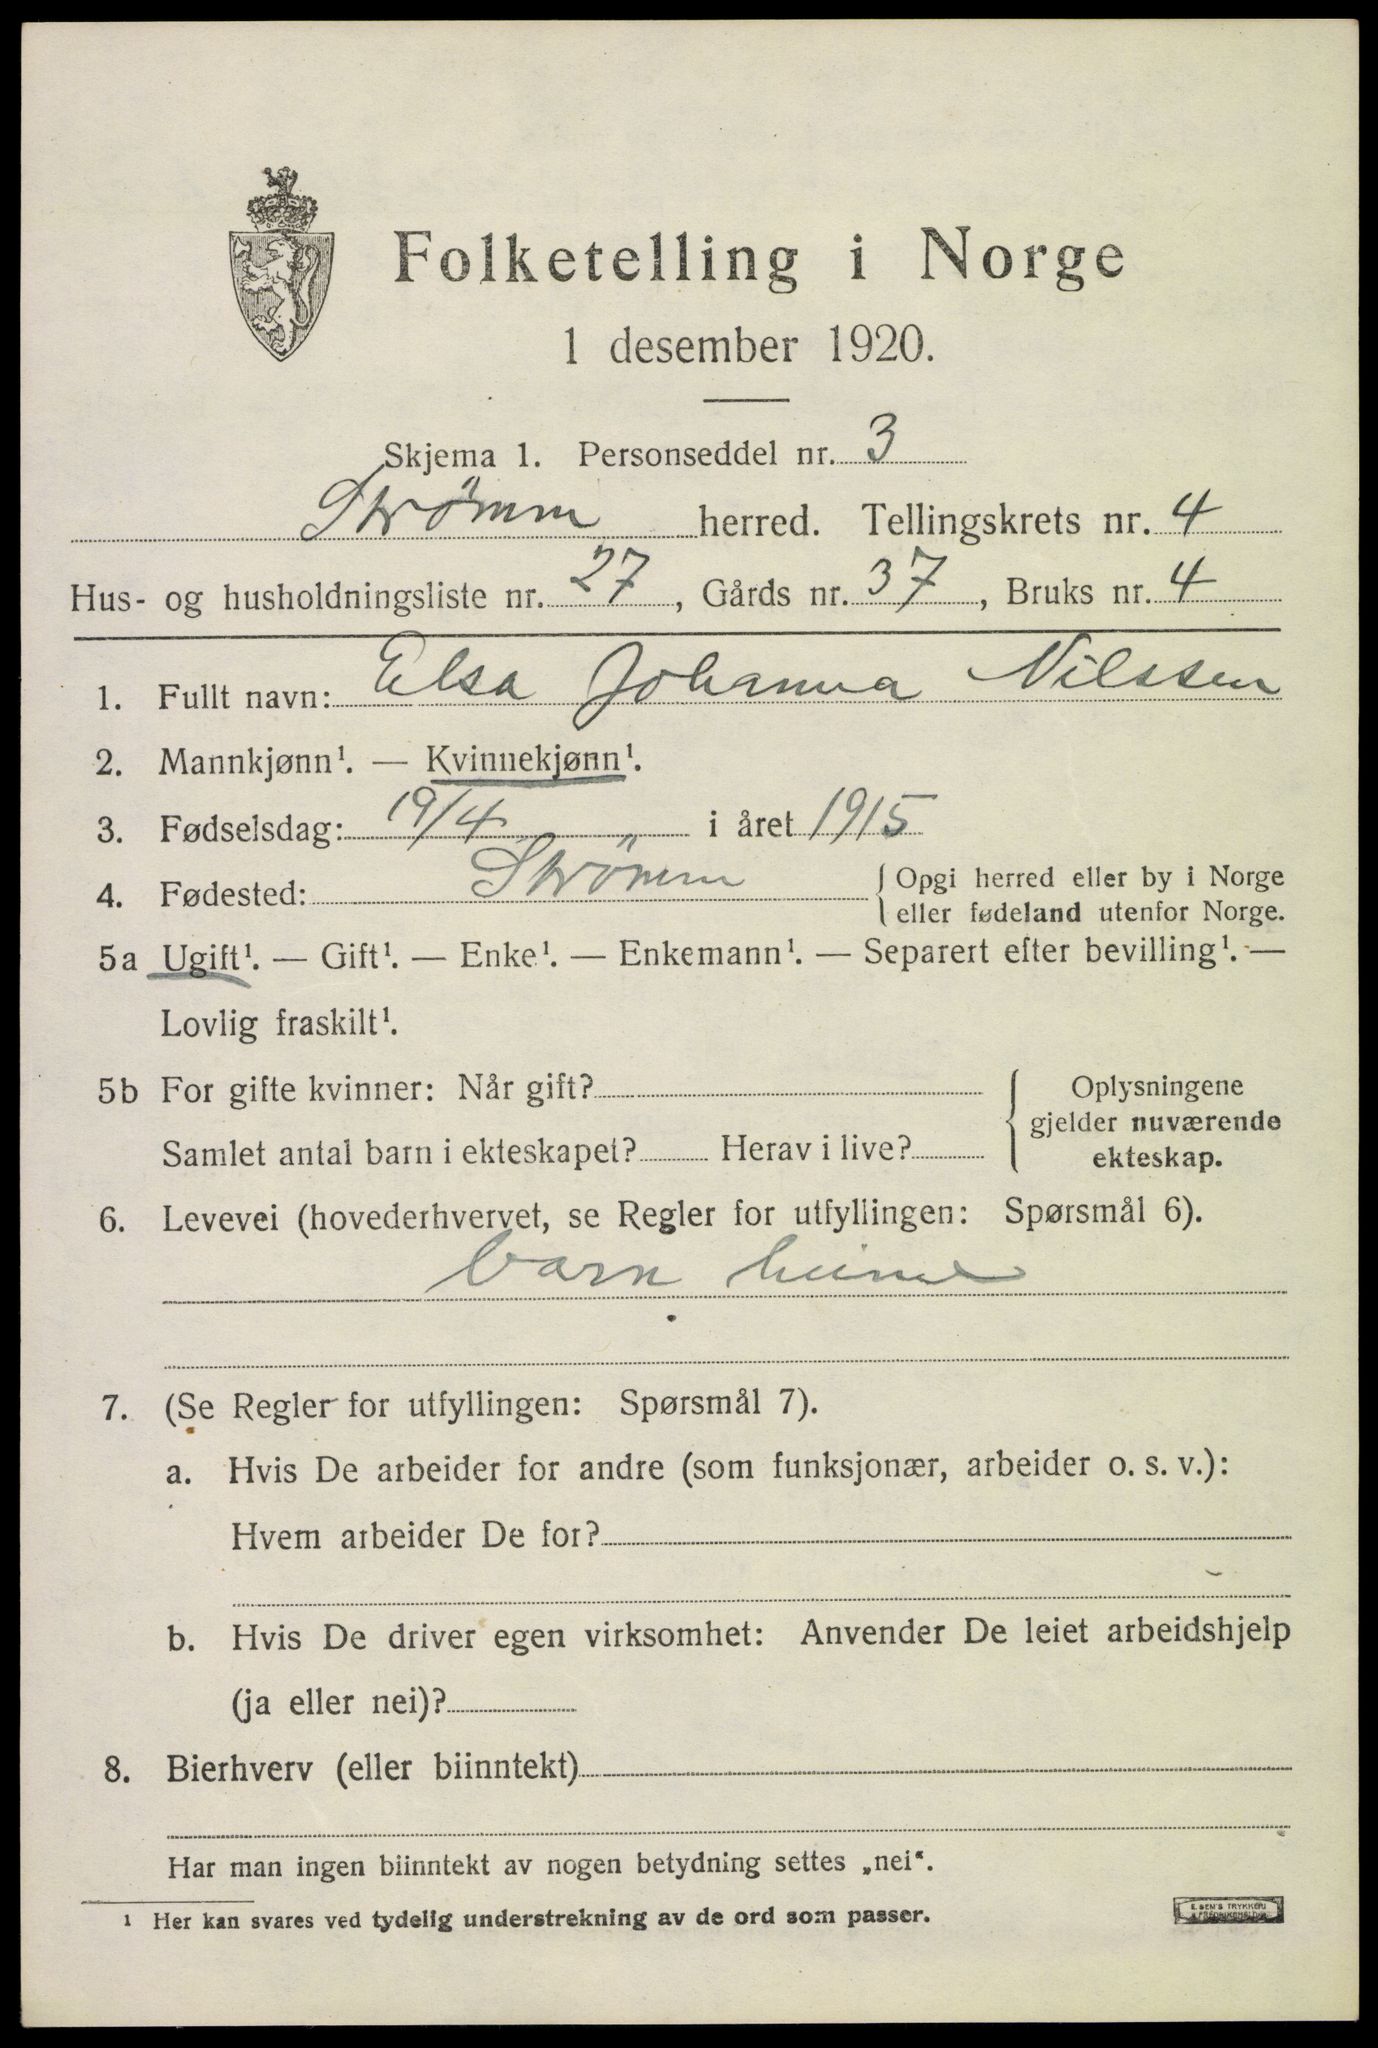 Folketelling i Norge
1 desember 1920.
Skjema 1. Personseddel nr. 3
Strømm herred. Tellingskrets nr. 4
Hus- og husholdningsliste nr. 27, Gårds nr. 37, Bruks nr. 4
1. Fullt navn: Elsa Johanna Nilssen
2. Mannkjønn¹. — Kvinnekjønn¹.
3. Fødselsdag: 19/4 i året 1915
4. Fødested: Strömm { Opgi herred eller by i Norge
eller fødeland utenfor Norge.
5a Ugift¹. — Gift¹. — Enke¹. — Enkemann¹. — Separert efter bevilling¹. —
Lovlig fraskilt¹.
5b For gifte kvinner: Når gift?
Samlet antal barn i ekteskapet? Herav i live?
{ Oplysningene
gjelder nuværende
ekteskap.
6. Levevei (hovederhvervet, se Regler for utfyllingen: Spørsmål 6).
barn heime
7. (Se Regler for utfyllingen: Spørsmål 7).
a. Hvis De arbeider for andre (som funksjonær, arbeider o. s. v.):
Hvem arbeider De for?
b. Hvis De driver egen virksomhet: Anvender De leiet arbeidshjelp
(ja eller nei)?
8. Bierhverv (eller biinntekt)
Har man ingen biinntekt av nogen betydning settes „nei“.
¹ Her kan svares ved tydelig understrekning av de ord som passer.
TRYKKERI